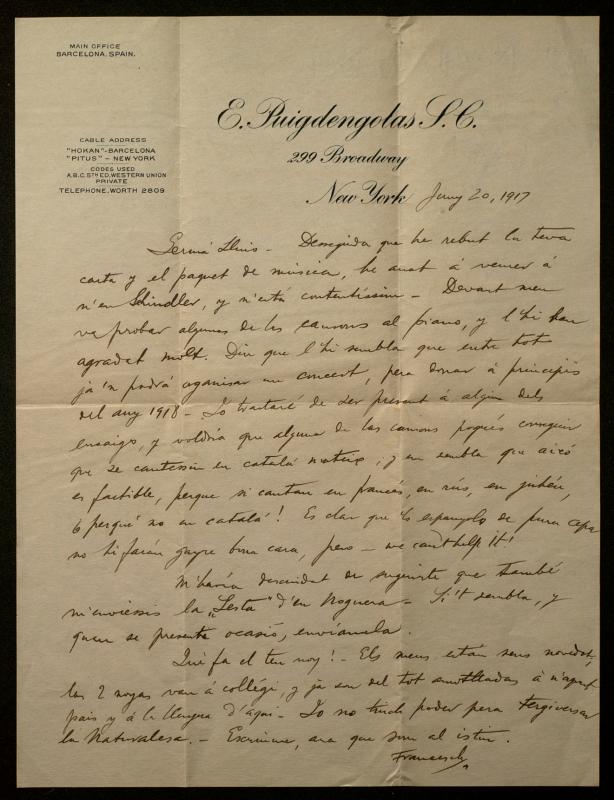 MAIN OFFICE
BARCELONA, SPAIN.
E. Puigdengolas S. C.
299 Broadway
New York
CABLE ADDRESS
"HOKAN"-BARCELONA
"PITUS" - NEW YORK
CODES USED
A.B.C. 5TH ED. WESTERN UNION
PRIVATE
TELEPHONE, WORTH 2809
Juny 20, 1917
Germá Lluis - Desseguida que he rebut la teva
carta y el paquet de música, he anat á veurer á
n'en Schindler, y n'está contentíssim - Devant meu
va probar algunas de las cansons al piano, y l'hi han
agradat mólt. Diu que l'hi sembla que entre tot
ja'n podrá organisar un concert, pera donar á principis
del any 1918 - Jo tractaré de ser present á algún dels
ensaigs, y voldría que alguna de las cansons pogués conseguir
que se cantessin en catalá mateix; y em sembla que aixó
es factible, perque si cantan en francés, en rús, en
perqué no en catalá! Es clar que 'ls espanyols de pura cepa
no hi farán gayre bona cara, pero - we can't help it!
M'havía descuidat de sugerirte que també
m'enviessis la "Festa" d'en Noguera - Si't sembla, y
quan se presenta ocasió, envíamela.
Qué fa el teu noy! - Els meus están sens novedat,
las 2 noyas van á collégi, y ja son del tot amotlladas á n'aquet
pais y á la llengua d'aquí - Jo no tinch poder pera tergiversar
la Naturalesa. - Escriume, ara que som al istiu.
Francesch